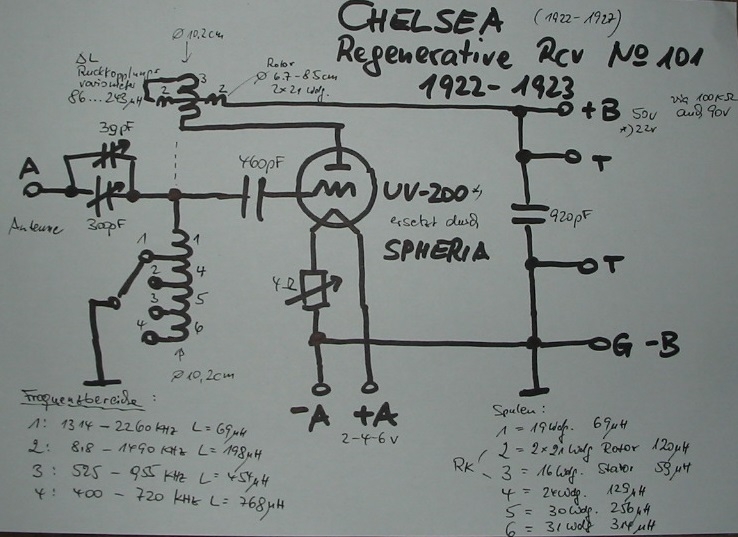 CHELSEA (1922-1927)
Regenerative Rcv No 101
1922-1923
Ø 10,2cm
ΔL
Rückkopplungs
variometer
86...243µH
3
2
2
Rotor
Ø 6.7-8.5cm
2x21 Wdg.
+B 50V via 100KΩ
auch 90V
*) 22V
T
39pF
A
Antenne
300pF
460pF
UV-200
ersetzt durch
SPHERIA
920pF
T
1
2
3
4
1
4
5
6
4Ω
Ø 10,2cm
G -B
-A +A
2-4-6V
Frequenzbereiche:
1: 1314-2260 KHz L=69µH
2: 818-1490 KHz L=198µH
3: 525-955 KHz L=454µH
4: 400-720 KHz L=768µH
Spulen:
1 = 19 Wdg. 69µH
RK
2 = 2x21 Wdg Rotor 120µH
3 = 16 Wdg. Stator 59µH
4 = 24 Wdg. 129µH
5 = 30 Wdg. 256µH
6 = 31 Wdg 314µH